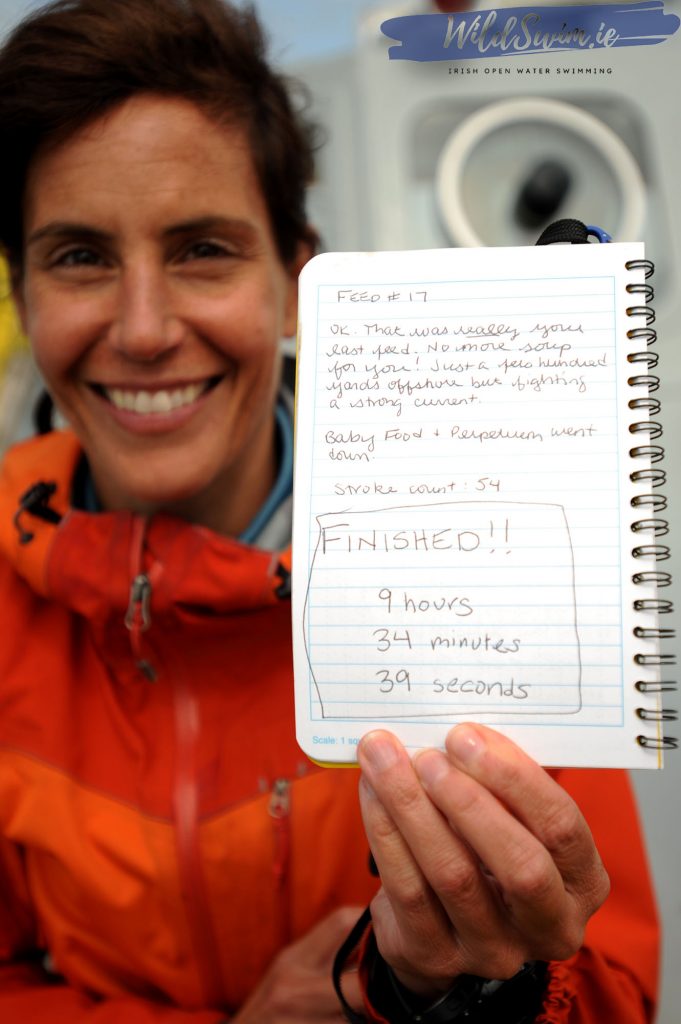 WildSwim.ie
IRISH OPEN WATER SWIMMING
FEED # 17
OK. That was really your
last feed. No more soup
for you! Just a few hundred
yards offshore but fighting
a strong current.
Baby Food + Perpetuem went
down.
Stroke count: 54
FINISHED!!
9 hours
34 minutes
39 seconds
Scale: 1 squ